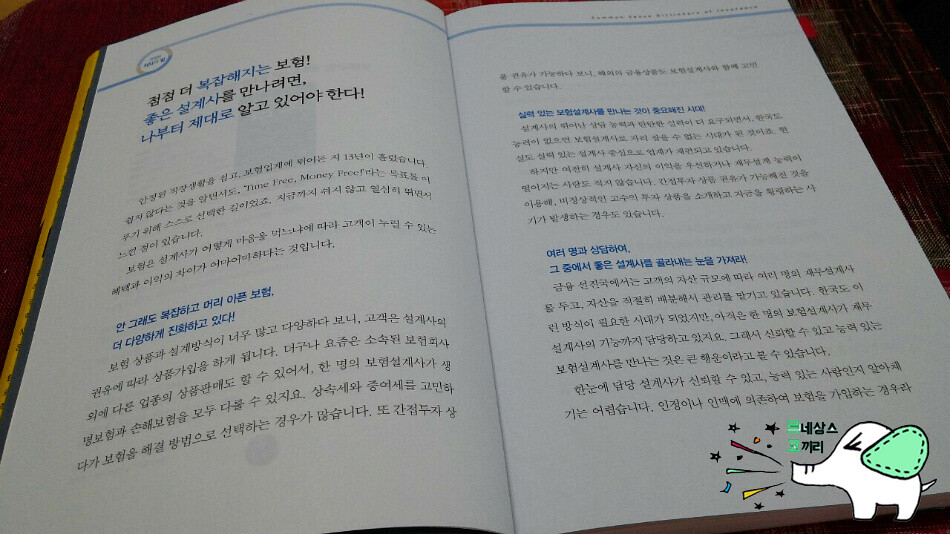 점점 더 복잡해지는 보험!
좋은 설계사를 만나려면,
나부터 제대로 알고 있어야 한다!
안정된 직장생활을 접고, 보험업계에 뛰어든 지 13년이 흘렀습니다.
쉽지 않다는 것을 알면서도, 'Time Free, Money Free!'라는 목표를 이
루기 위해 스스로 선택한 길이었죠. 지금까지 쉬지 않고 열심히 뛰면서
느낀 점이 있습니다.
보험은 설계사가 어떻게 마음을 먹느냐에 따라 고객이 누릴 수 있는
혜택과 이익의 차이가 어마어마하다는 것입니다.
안 그래도 복잡하고 머리 아픈 보험,
더 다양하게 진화하고 있다!
보험 상품과 설계방식이 너무 많고 다양하다 보니, 고객은 설계사의
권유에 따라 상품가입을 하게 됩니다. 더구나 요즘은 소속된 보험회사
외에 다른 업종의 상품판매도 할 수 있어서, 한 명의 보험설계사가 생
명보험과 손해보험을 모두 다룰 수 있지요. 상속세와 증여세를 고민하
다가 보험을 해결 방법으로 선택하는 경우가 많습니다. 또 간접투자 상
Common Sense Dictionary of Insurance
품 권유가 가능하다 보니, 해외의 금융상품도 보험설계사와 함께 고민
할 수 있습니다.
실력 있는 보험설계사를 만나는 것이 중요해진 시대!
설계사의 뛰어난 상담 능력과 탄탄한 실력이 더 요구되면서, 한국도
능력이 없으면 보험설계사로 자리 잡을 수 없는 시대가 된 것이죠. 현
실도 실력 있는 설계사 중심으로 업계가 재편되고 있습니다.
하지만 여전히 설계사 자신의 이익을 우선하거나 재무설계 능력이
떨어지는 사람도 적지 않습니다. 간접투자 상품 권유가 가능해진 것을
이용해, 비정상적인 고수익 투자 상품을 소개하고 자금을 횡령하는 사
기가 발생하는 경우도 있습니다.
여러 명과 상담하여,
그 중에서 좋은 설계사를 골라내는 눈을 가져라!
금융 선진국에서는 고객의 자산 규모에 따라 여러 명의 재무설계사
를 두고, 자산을 적절히 배분해서 관리를 맡기고 있습니다. 한국도 이
런 방식이 필요한 시대가 되었지만, 아직은 한 명의 보험설계사가 재무
설계사의 기능까지 담당하고 있지요. 그래서 신뢰할 수 있고 능력 있는
보험설계사를 만나는 것은 큰 행운이라고 볼 수 있습니다.
한눈에 담당 설계사가 신뢰할 수 있고, 능력 있는 사람인지 알아채
기는 어렵습니다. 인정이나 인맥에 의존하여 보험을 가입하는 경우라
르네상스
코끼리